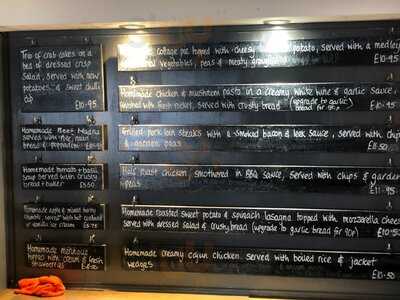 Trio of crab cakes on a
bed of dressed crisp
Salad, served with new
potatoes & sweet chilli
dip
£10.95
Homemade
served with rice, naan
bread & poppadom
Homemade tomato + basil
Soup served with crusty
bread + butter £5.50
Homemade apple & mixed berry
crumble, served with hot custard
or vanilla ice cream £5.75
Homemade
topped with cream & fresh
strawberries
cottage pie topped with cheesy potato, served with a medley
Seasonal Vegetables, peas & meaty gravy
£10.95
Homemade Chicken & mushroom pasta in a creamy white wine & garlic sauce,
finished with fresh rocket, served with crusty bread (upgrade to garlic
bread for 90p) £10.95
Grilled pork loin steaks with a smoked bacon & leek sauce, served with chips
& garden peas £11.50
Half roast chicken smothered in BBQ sauce, served with chips & garden
peas £11.95
Homemade roasted sweet potato & spinach lasagna topped with mozzarella cheese
served with dressed salad & crusty bread (upgrade to garlic bread for 90p) £10.50
Homemade creamy cajun chicken served with boiled rice & jacket
wedges £10.95